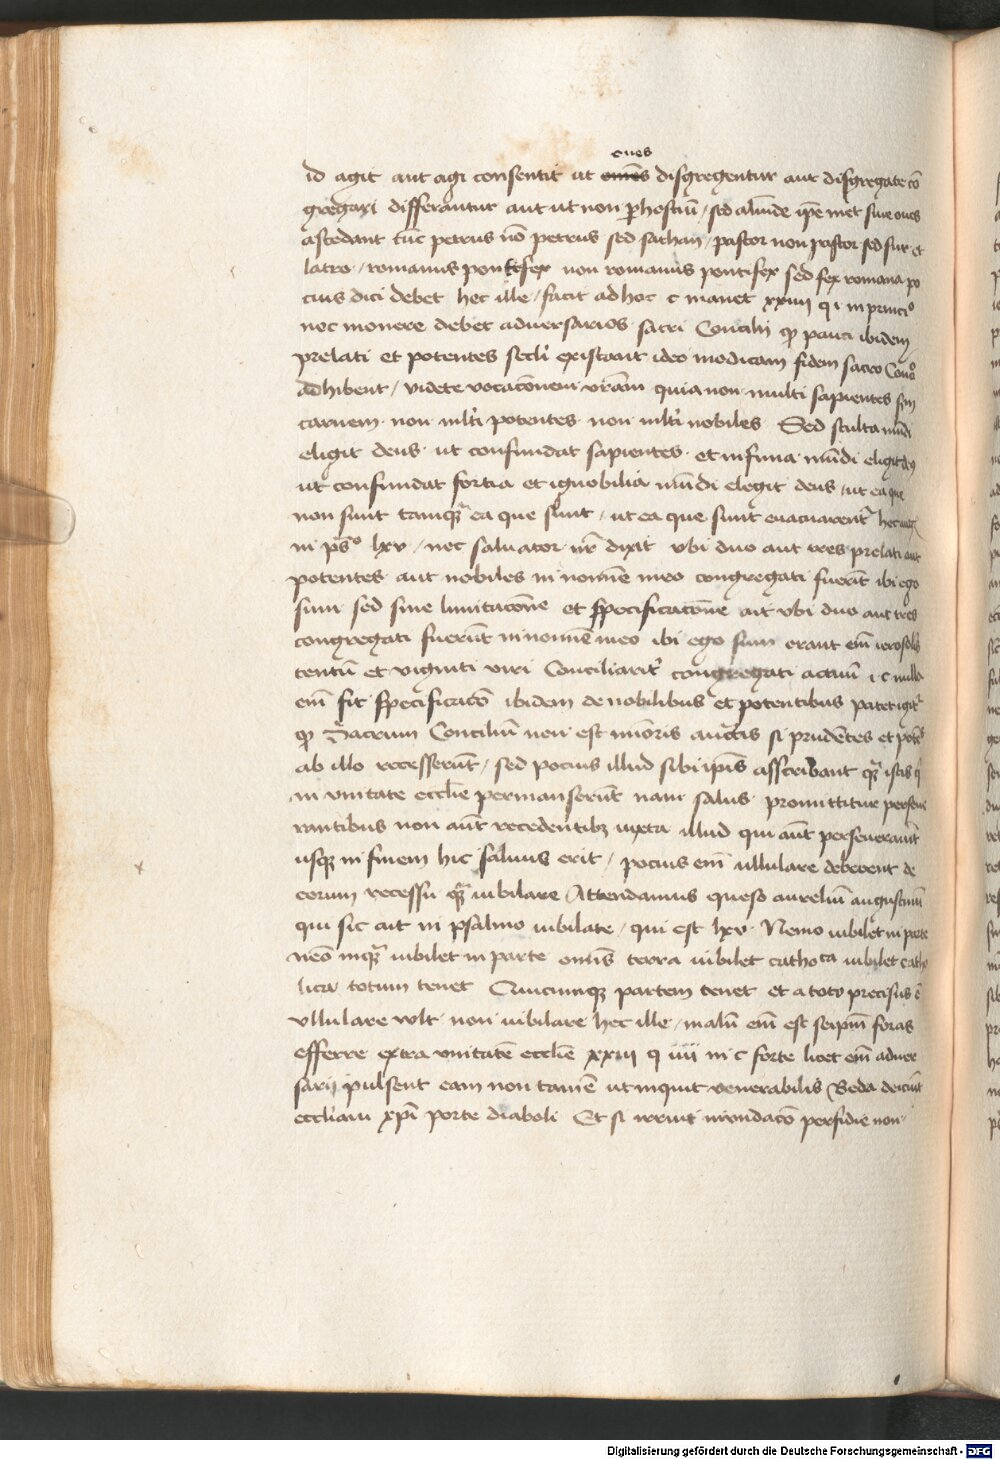 oues
id agit aut agi consentit ut om̅es disgregentur aut disgregate co̅
gregari differantur aut ut non p hostiu̅ / sed aliu̅de ip̅e met siue oues
ascedant tu̅c petrus no̅ petrus sed sathan / pastor non pastor sed fur et
latro / romanus pontifex non romanus pontifex sed fex romana po
cius dici debet hec ille / facit ad hoc c manet xxiiij q i in princio
nec monere debet aduersarios sacri Concilij qp pauci ibidem
prelati et potentes secli existant ideo modicam fidem sacro Conco
adhibent / videte vocac̅onem vr̅am quia non multi sapientes sm
carnem non mlti potentes non mlti nobiles Sed stulta mu̅di
eligit deus ut confundat sapientes et infirma mu̅di eligit
ut confundat fortia et ignobilia mu̅di elegit deus / ut ea que
non sunt tamqz ea que sunt / ut ea que sunt euacuarent hec
in ps̅o lxv / nec saluator nr̅ dixit vbi duo aut tres prelati aut
potentes aut nobiles in nomi̅e meo congregati fueri̅t ibi ego
sum sed sine limitaco̅ne et specificaco̅ne ait vbi duo aut tres
congregati fueri̅t in nomi̅e meo ibi ego sum erant em̅ ierosolis
centu̅ et viginti viri Conciliarit congregati actuu̅ i c nulla
em̅ fit specificaco̅ ibidem de nobilibus et potentibus patet igit
qp Sacrum Concilium non est mi̅oris auct̅tis si prude̅tes et pote̅s
ab illo recesseru̅t / sed pocius illud sibi ip̅is asscribant qz istis q
in vnitate eccli̅e permanseru̅t nam salus promittitur perseue
rantibus non au̅t recedentibz iuxta illud qui au̅t perseuerauit
usqz in finem hic saluus erit / pocius em̅ ullulare deberent de
eorum recessu qz iubilare Attendamus queso aureliu̅ augustinu̅
qui sic ait in psalmo iubilate / qui est lxv Nemo iubilet in parte
neo inqz iubilet in parte omis terra iubilet catho ca iubilet catho
lica totum tenet Quicumqz partem tenet et a toto precisus e̅
vllulare vlt non iubilare hec ille / malu̅ em̅ est seipm̅ foras
efferre extra vnitate̅ eccli̅e xxiij q iiij in c forte licet em̅ aduer
sarij pulsent eam non tame̅ ut inquit venerabilis Beda deiciu̅t
eccl̅iam xp̅i porte diaboli Et si irruit mundaco̅ perfidie non
Digitalisierung gefördert durch die Deutsche Forschungsgemeinschaft - DFG